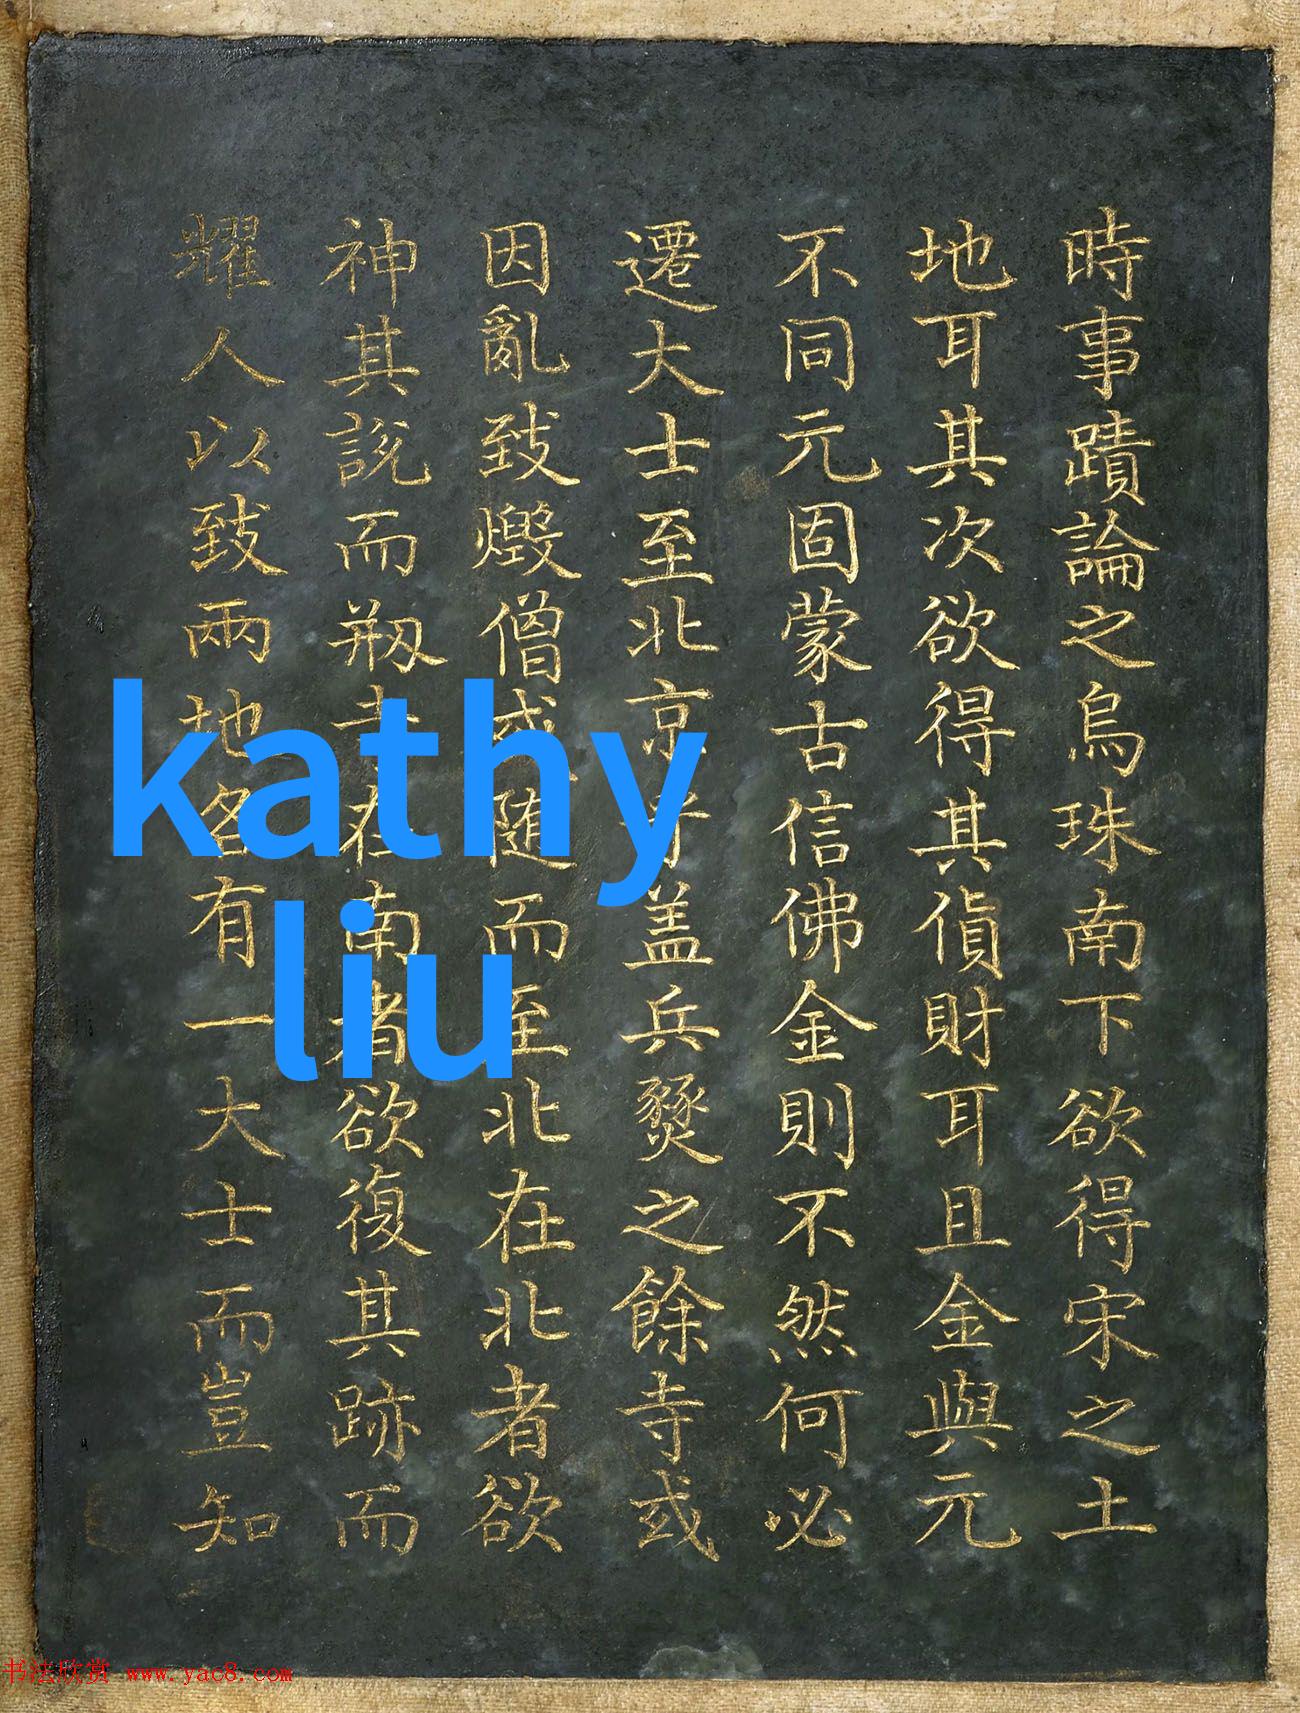 時事蹟論之烏珠南下欲得宋之土
地耳其次欲得其貨財耳且金與元
不同元固蒙古信佛金則不然何必
遷大士至北京乎盖兵燹之餘寺或
因亂致燬僧或随而至北在北者欲
神其說而剏在南者欲復其跡而
耀人以致兩地各有一大士而豈知
kathy
liu
书法欣赏 www.yac8.com